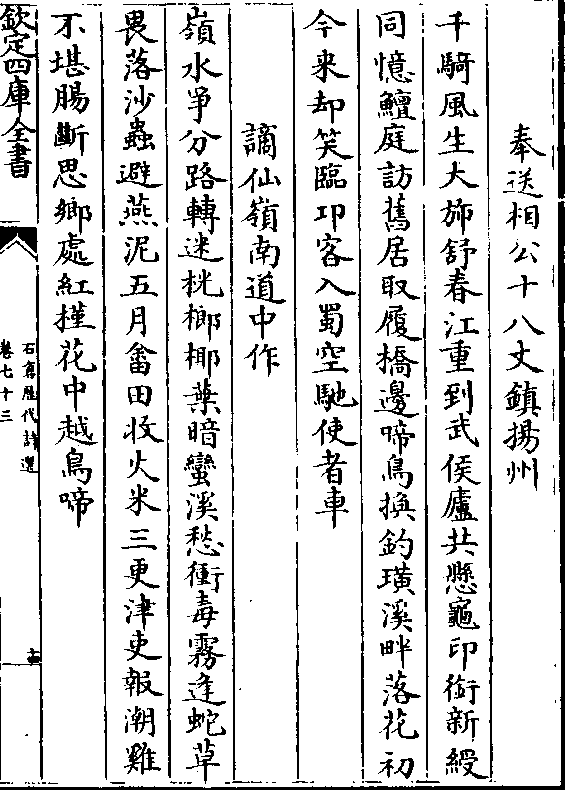 奉送相公十八丈鎮揚州
千騎風生大斾舒春江重到武侯廬共懸龜印銜新綬
同憶鱣庭訪舊居取履橋邊啼鳥換釣璜溪畔落花初
今来却笑臨卭客入蜀空馳使者車
謫仙嶺南道中作
嶺水爭分路轉迷桄榔椰葉暗蠻溪愁衝毒霧逢蛇草
畏落沙蟲避燕泥五月畬田收火米三更津吏報潮雞
不堪腸斷思鄉處紅槿花中越鳥啼
欽定四庫全書
石倉歷代詩選
卷七十三